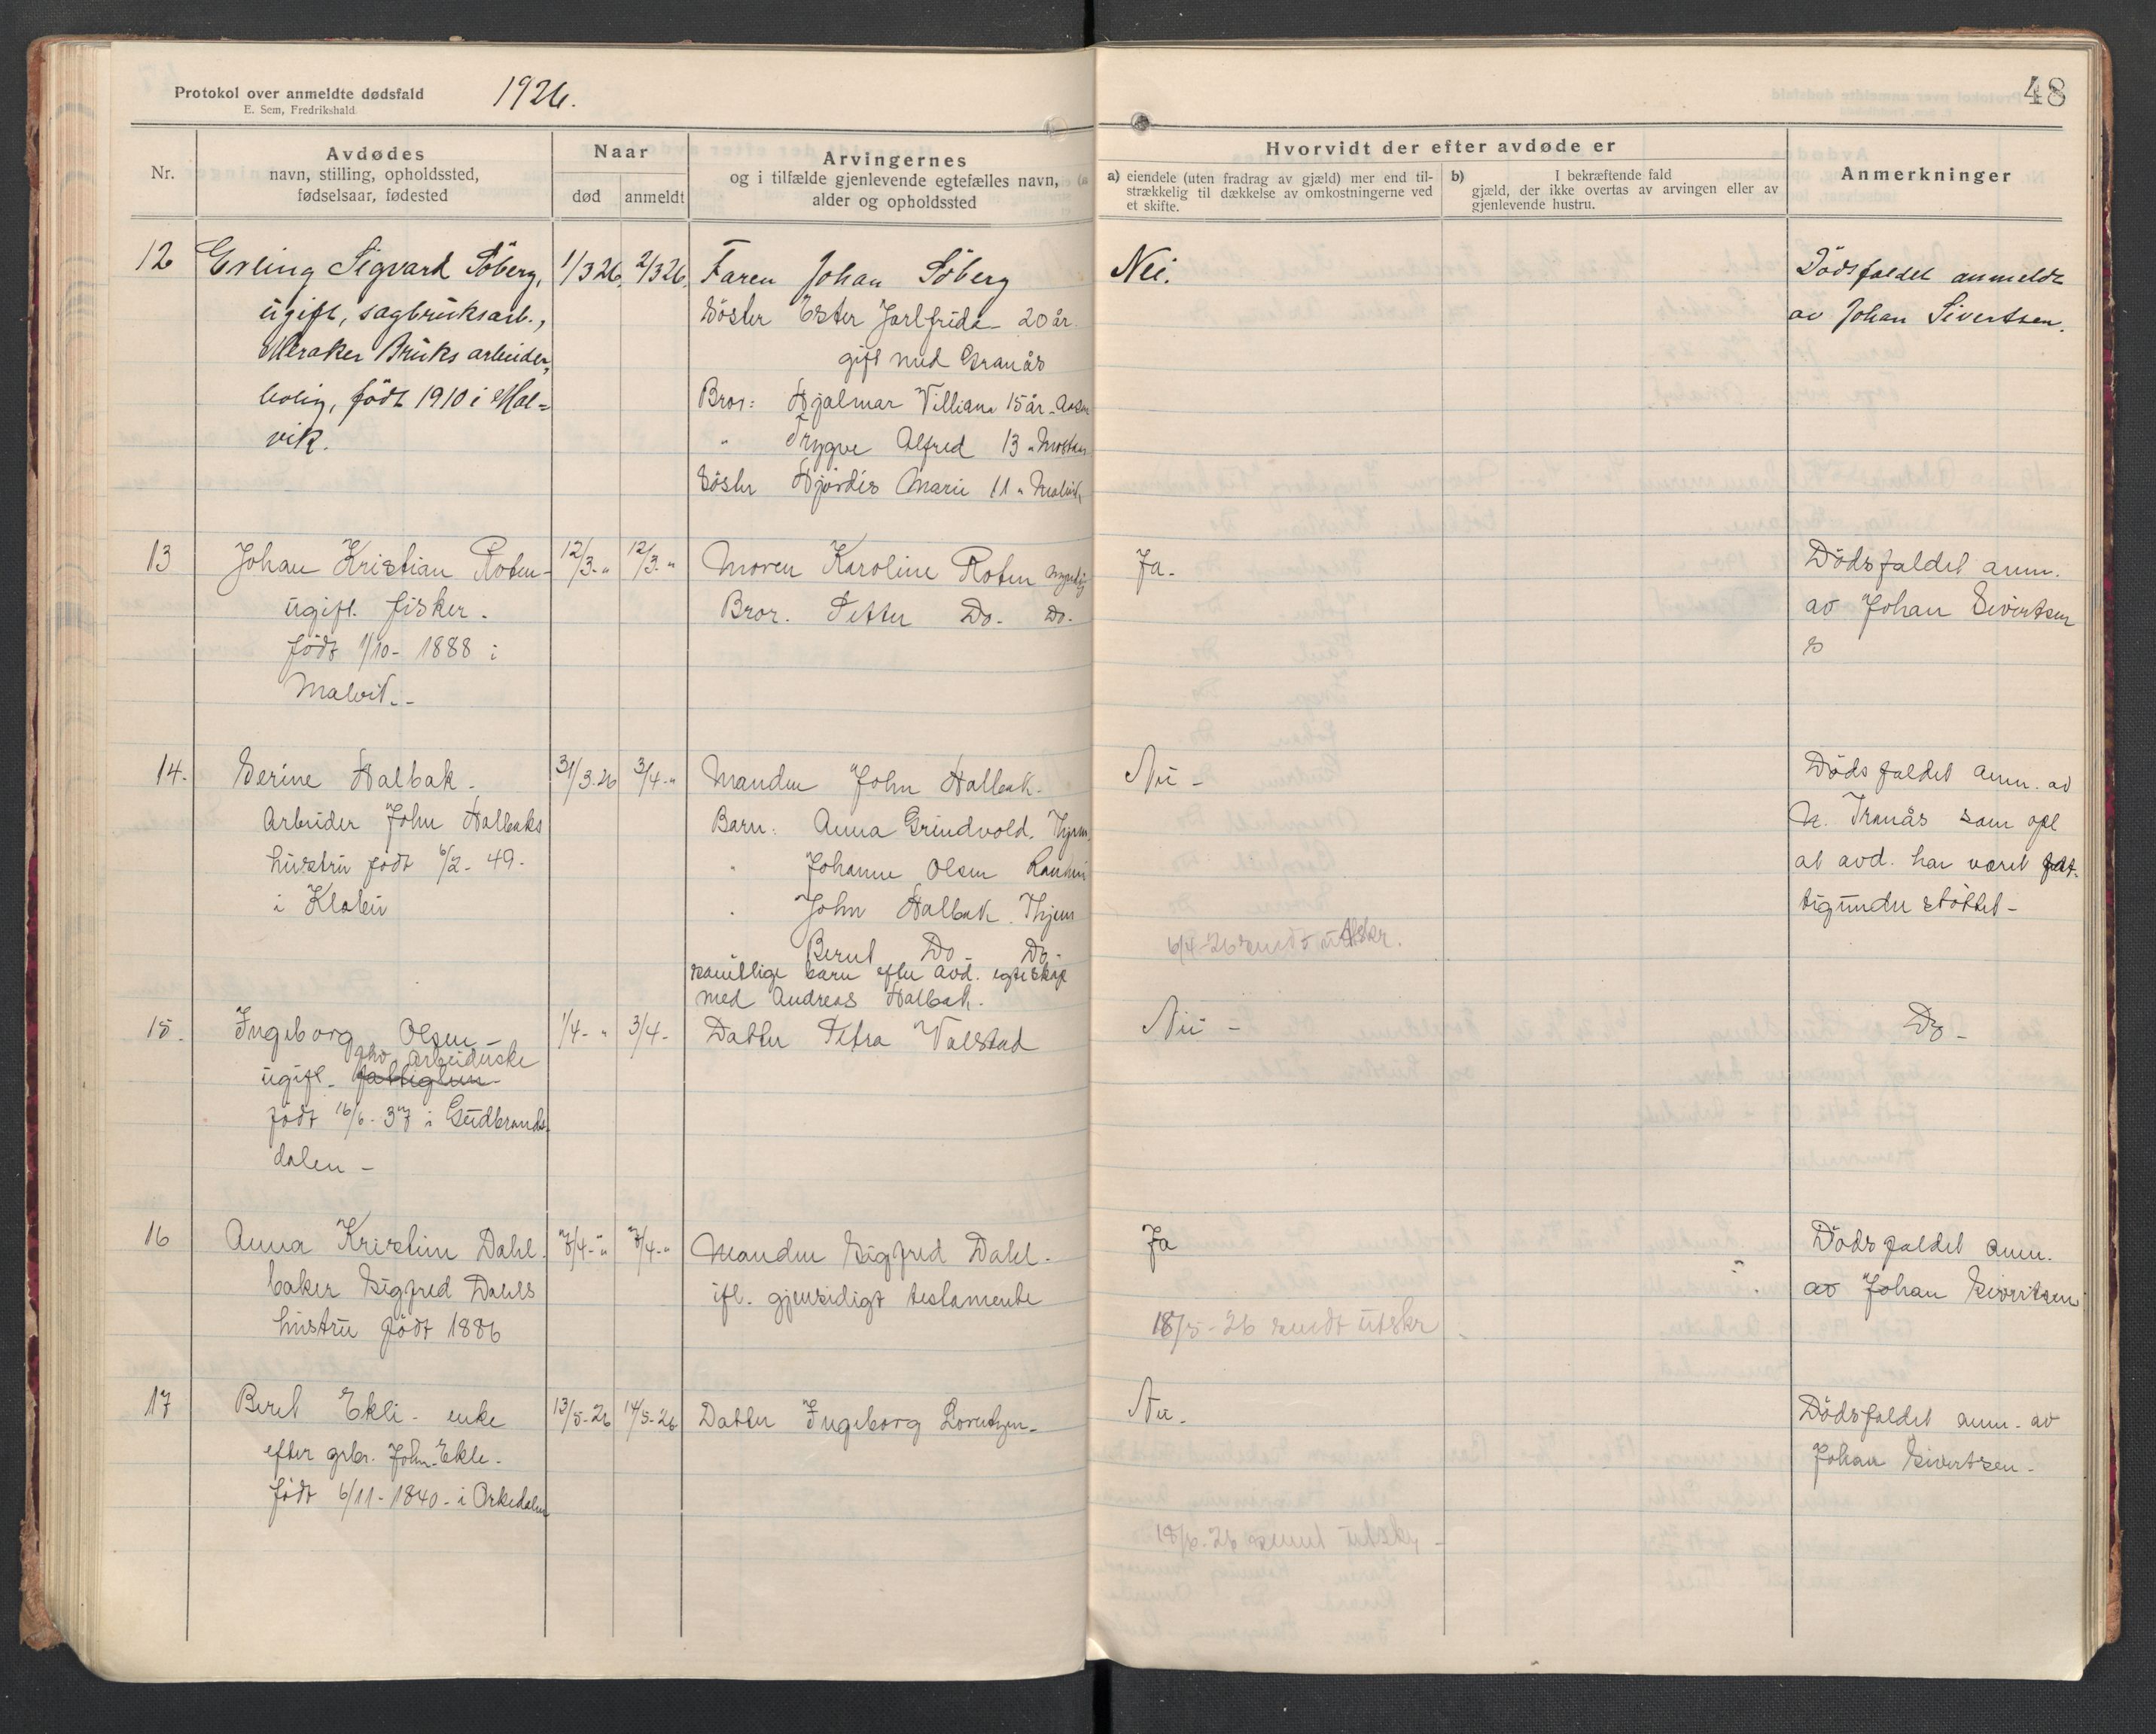 Protokol over anmeldte dødsfald
E. Sem, Fredrikshald.
1926.
48
Nr.
Avdødes
navn, stilling, opholdssted,
fødselsaar, fødested
Naar
død
anmeldt
Arvingernes
og i tilfælde gjenlevende egtefælles navn,
alder og opholdssted
Hvorvidt der efter avdøde er
a) eiendele (uten fradrag av gjæld) mer end til-
strækkelig til dækkelse av omkostningerne ved
et skifte.
b) I bekræftende fald
gjæld, der ikke overtas av arvingen eller av
gjenlevende hustru.
Anmerkninger
12
Erling Sigvard Söberg,
ugift, sagbruksarb.,
Meraker Bruks arbeider,
bolig, födt 1910 i Mal=
vik.
1/3 26.
2/3 26.
Faren Johan Söberg
Söster Ester Jarlfrida 20 år.
gift med Granås
Bror: Hjalmar Villiam 15 år -
" Trygve Alfred 13 "
Söster Hjördis Marie 11 " Malvik
Nei.
Dödsfaldet anmeldt
av Johan Sivertsen.
13
Johan Kristian Roten -
ugift. fisker.
födt 1/10 - 1888 i
Malvik. -
12/3 - "
12/3 - "
Moren Karoline Roten
Bror. Petter Do. Do.
Ja.
Dödsfaldet anm.
av Johan Sivertsen
14.
Serine Halbak.
Arbeider John Halbaks
hustru født 6/2 - 49.
i Klæbu
31/3.26
3/4 - "
Manden John Halbak.
Barn: Anna Grindvold. Thjem
" Johanne Olsen Ranheim
" John Halbak. Thjem
" Berut Do - Do -
samtlige barn efter avd. egteskap
med Andreas Halbak.
Nei -
6/4-26 sendt utskr.
Döds faldet anm. av
N. Tranås som opl
at avd. har været fat-
tigunderstöttet -
15.
Ingeborg Olsen -
fhv. arbeiderske
ugift. fattiglem
födt 16/6 - 37 i Gudbrands
dalen -
1/4 - "
3/4 -
Datter Petra Valstad
Nei -
Do -
16
Anna Kristine Dahl.
baker Sigfred Dahls
hustru født 1886
7/4 - "
7/4 - "
Manden Sigfred Dahl.
ifl. gjensidigt testamente
Ja
18/5 - 26 sendt utskr
Dödsfaldet anm.
av Johan Sivertsen
17
Beret Ekli - enke
efter grbr. John Ekle.
födt 6/11 - 1840 - i Orkedalen
13/5-26
14/5-26
Datter Ingeborg Lorentzen -
Nei.
18/6-26 sendt utskr -
Dödsfaldet anm. av
Johan Sivertsen -